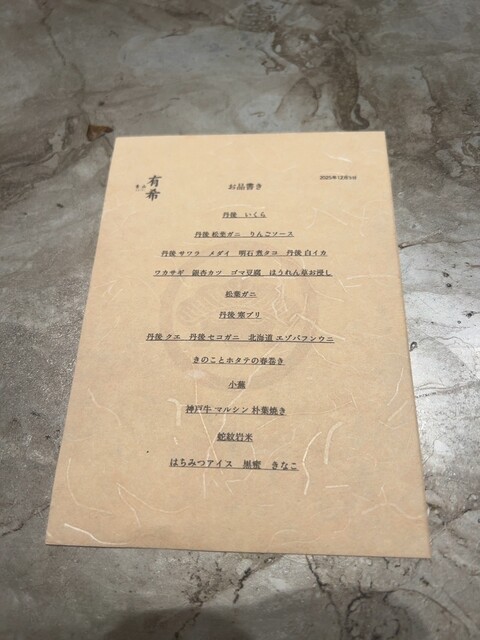 有希
お品書き
2025年12月5日
丹後 いくら
丹後 松葉ガニ りんごソース
丹後 サワラ メダイ 明石 煮タコ 丹後 白イカ
ワカサギ 銀杏カツ ゴマ豆腐 ほうれん草お浸し
松葉ガニ
丹後 寒ブリ
丹後 クエ 丹後 セコガニ 北海道 エゾバフンウニ
きのことホタテの春巻き
小蕪
神戸牛 マルシン 朴葉焼き
蛇紋岩米
はちみつアイス 黒蜜 きなこ